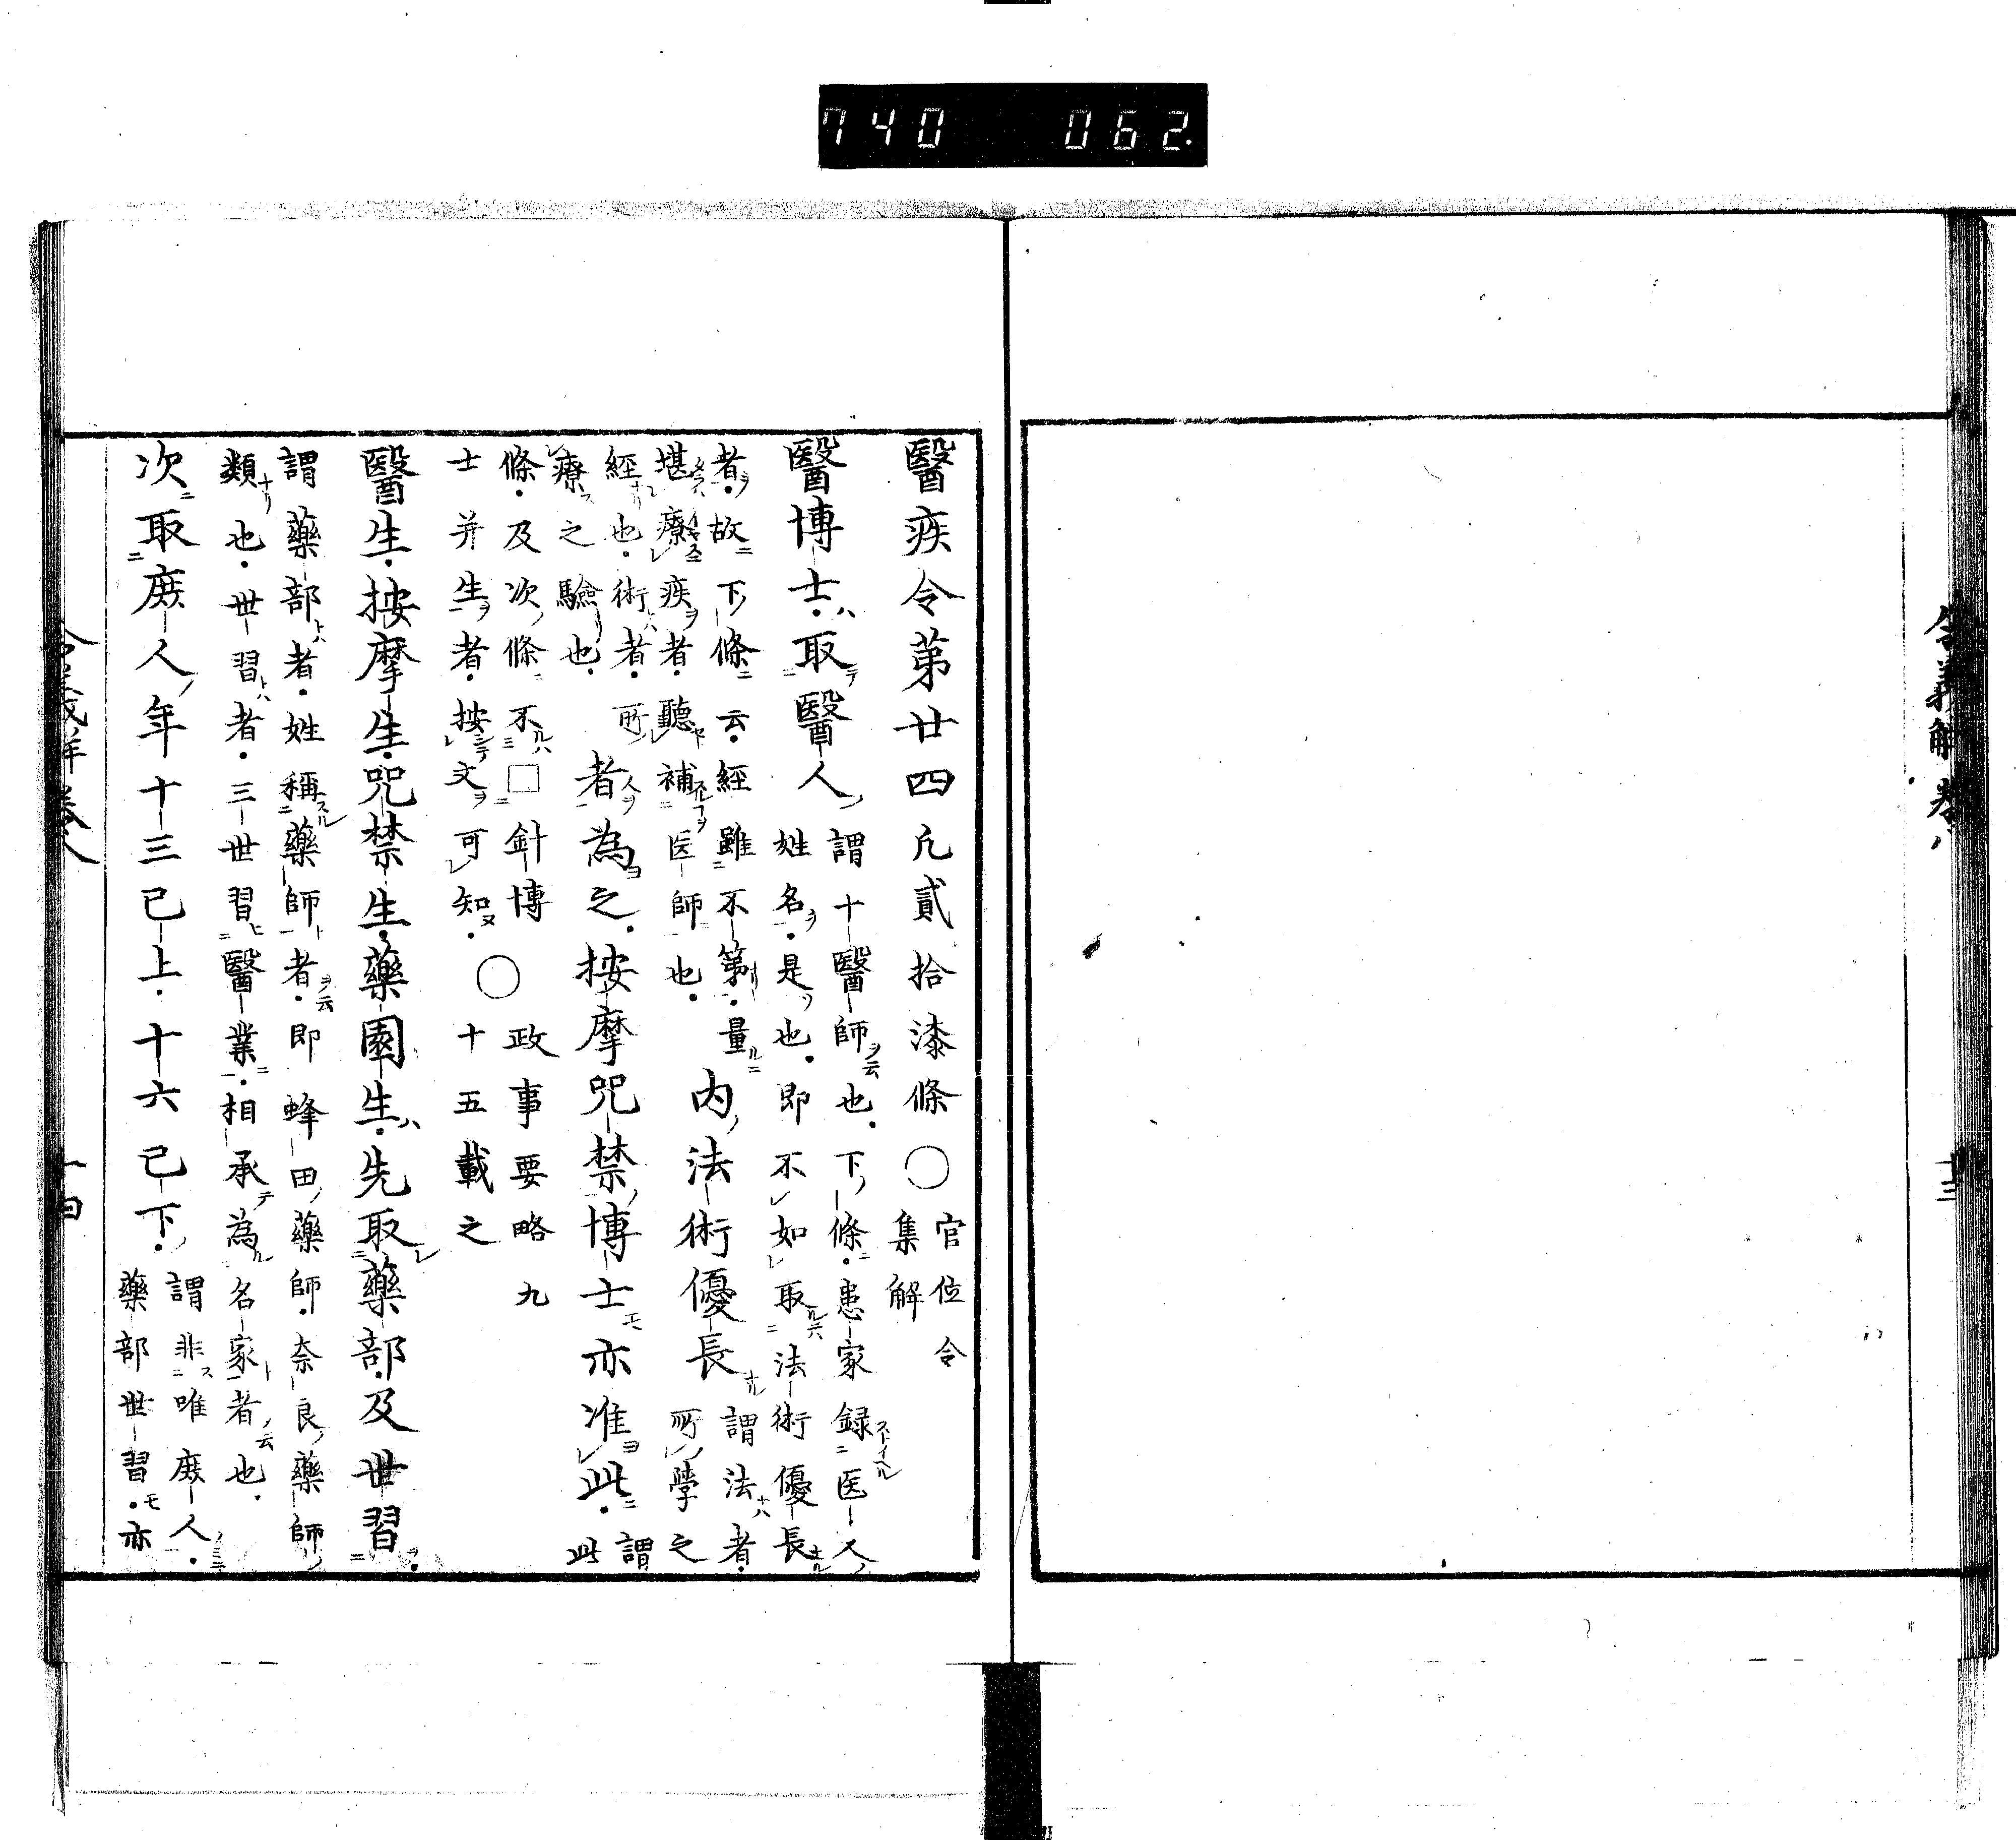 740 062.
令義解卷八
醫疾令第廿四凡貳拾漆條〇官位令
集解
醫博士取醫人謂十醫師也下條患家録医人
姓名是也即不如取法術優長
者故下條云經雖不第量
堪療疾者聽補医師也
内法術優長謂法者
所學之
經也術者所
療之驗也
者為之按摩咒禁博士亦准此謂
此
條及次條不□針博
士并生者按文可知
〇政事要略九
十五載之
醫生按摩生咒禁生藥園生先取藥部及世習
謂藥部者姓稱藥師者即蜂田藥師奈良藥師
類也世習者三世習醫業相承為名家者也
次取庶人年十三已上十六已下謂非唯庶人
藥部世習亦